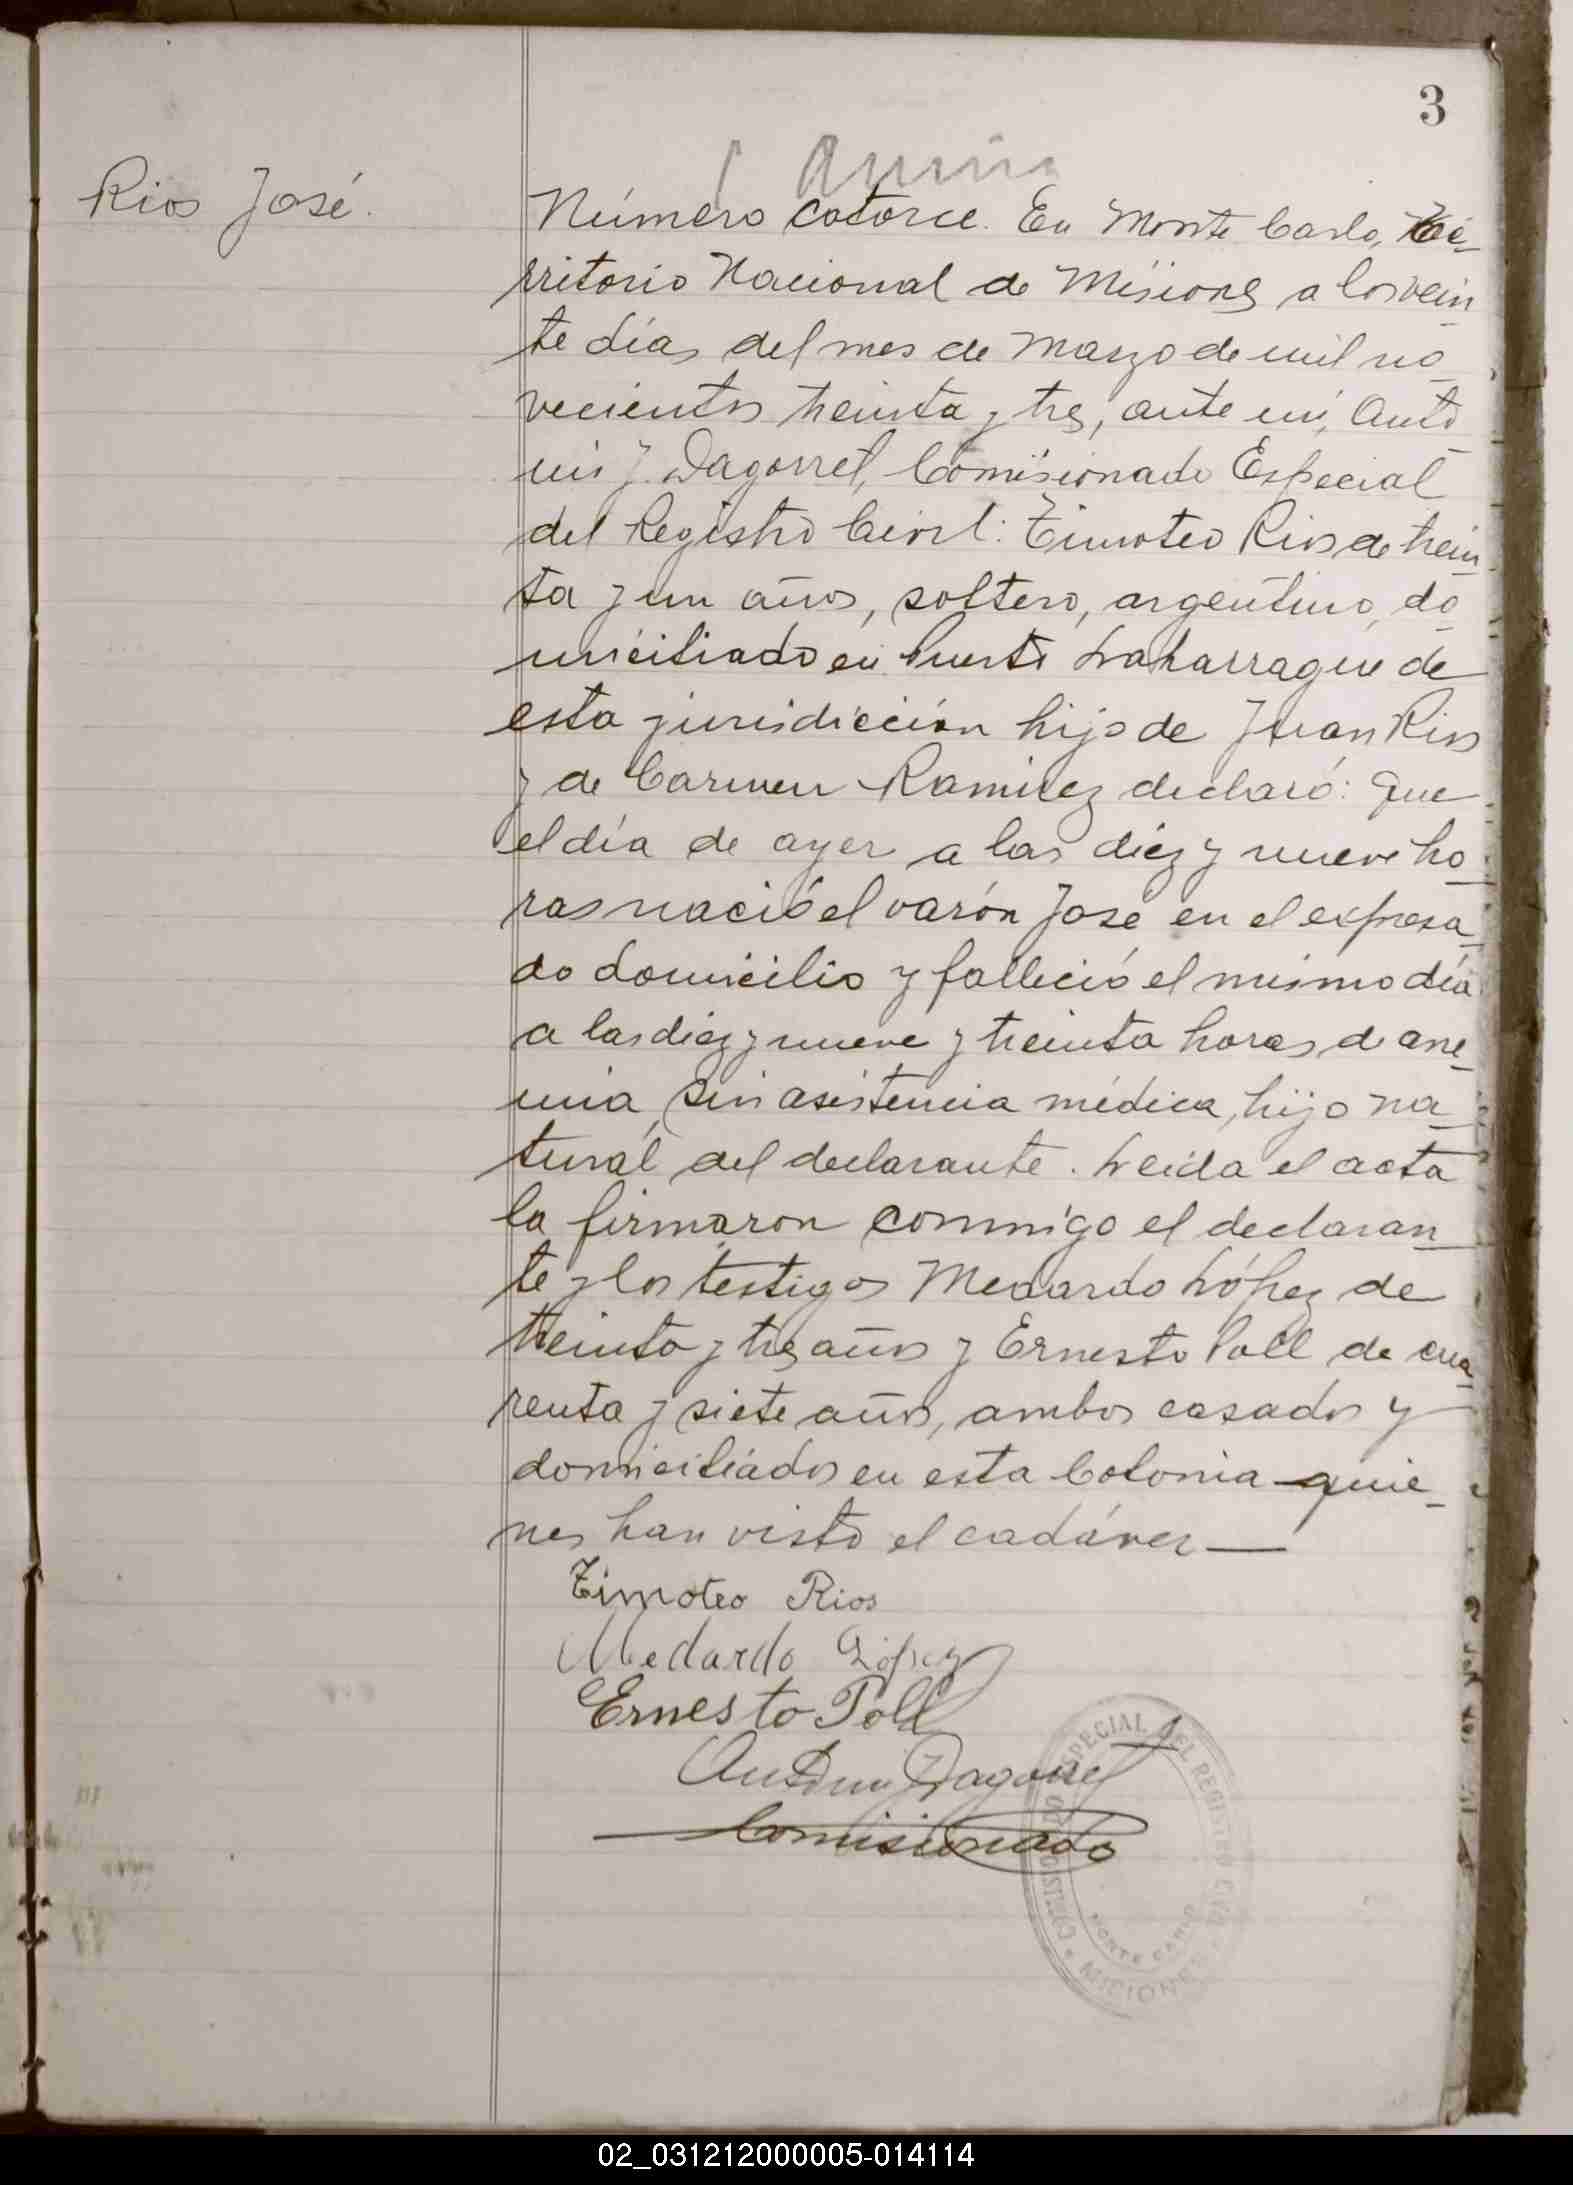 3
Rios José.
Número catorce. En Monte Carlo, Te-
rritorio Nacional de Misiones a los vein
te días del mes de Marzo de mil no
vecientos treinta y tres, ante mí, Anto
nio J. Dagorret, Comisionado Especial
del Registro Civil: Timoteo Rios de trein
ta y un años, soltero, argentino, do
miciliado en Puerto Laharrague de
esta jurisdicción hijo de Juan Rios
y de Carmen Ramirez declaró: Que
el día de ayer a las diez y nueve ho
ras nació el varón José en el expresa
do domicilio y falleció el mismo día
a las diez y nueve y treinta horas de ane
mia, sin asistencia médica, hijo na
tural del declarante. Leida el acta
la firmaron conmigo el declaran
te y los testigos Medardo López de
treinta y tres años y Ernesto Poll de cua
renta y siete años, ambos casados y
domiciliados en esta Colonia quie
nes han visto el cadáver —
Timoteo Rios
Medardo López
Ernesto Poll
Antonio J Dagorret
Comisionado
COMISIONADO ESPECIAL DEL REGISTRO CIVIL
MONTE CARLO
MICIONES
02_031212000005-014114